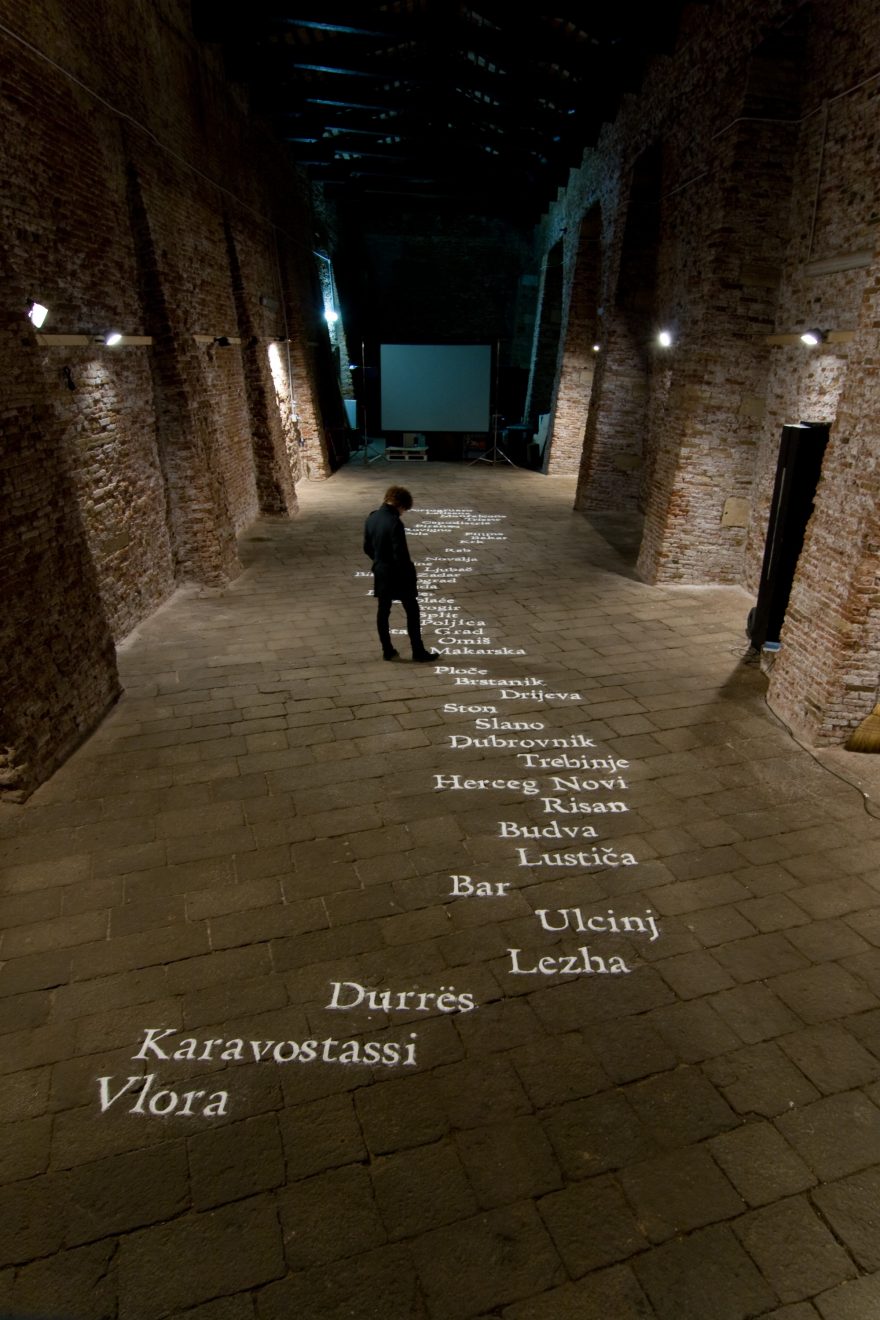 Trieste
Capodistria
Rab
Novalja
Ljubač
Zadar
Split
Poljica
Grad
Omiš
Makarska
Ploče
Brstanik
Drijeva
Ston
Slano
Dubrovnik
Trebinje
Herceg Novi
Risan
Budva
Luštica
Bar
Ulcinj
Lezha
Durrës
Karavostassi
Vlora